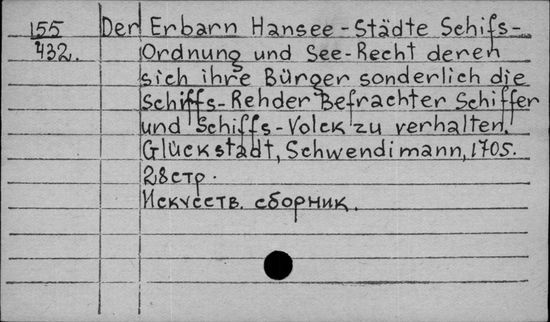 155 Der Erbarn Hansee-Städte Schifs-
432. Ordnung und See-Recht deren
sich ihre Bürger sonderlich die
Schiffs-Rehder Befrachter Schiffer
und Schiffs-Volck zu verhalten.
Glückstadt, Schwendimann, 1705.
28 стр.
Искусств. сборник.